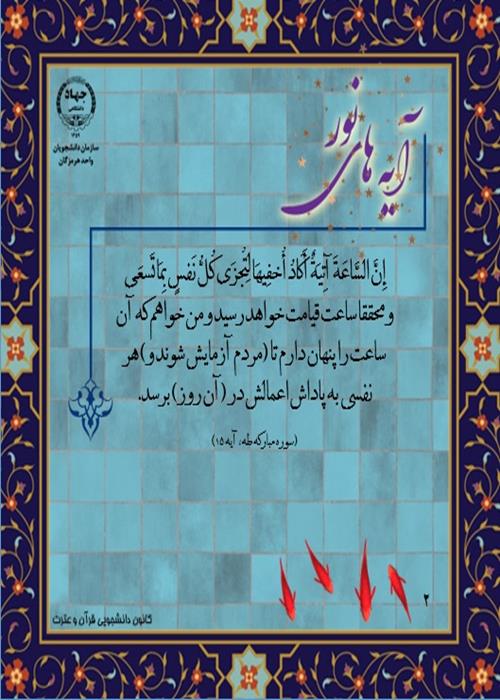 جهاد
دانشگاهی
۱۳۵۹
سازمان دانشجویان
واحد هرمزگان
آیه های نور
إِنَّ السَّاعَةَ آتِيَةٌ أَكَادُ أُخْفِيهَا لِتُجْزَى كُلُّ نَفْسٍ بِمَا تَسْعَى
و محققا ساعت قیامت خواهد رسید و من خواهم که آن
ساعت را پنهان دارم تا (مردم آزمایش شوند و) هر
نفسی به پاداش اعمالش در (آن روز) برسد.
(سوره مبارکه طه، آیه ۱۵)
۲
کانون دانشجویی قرآن و عترت